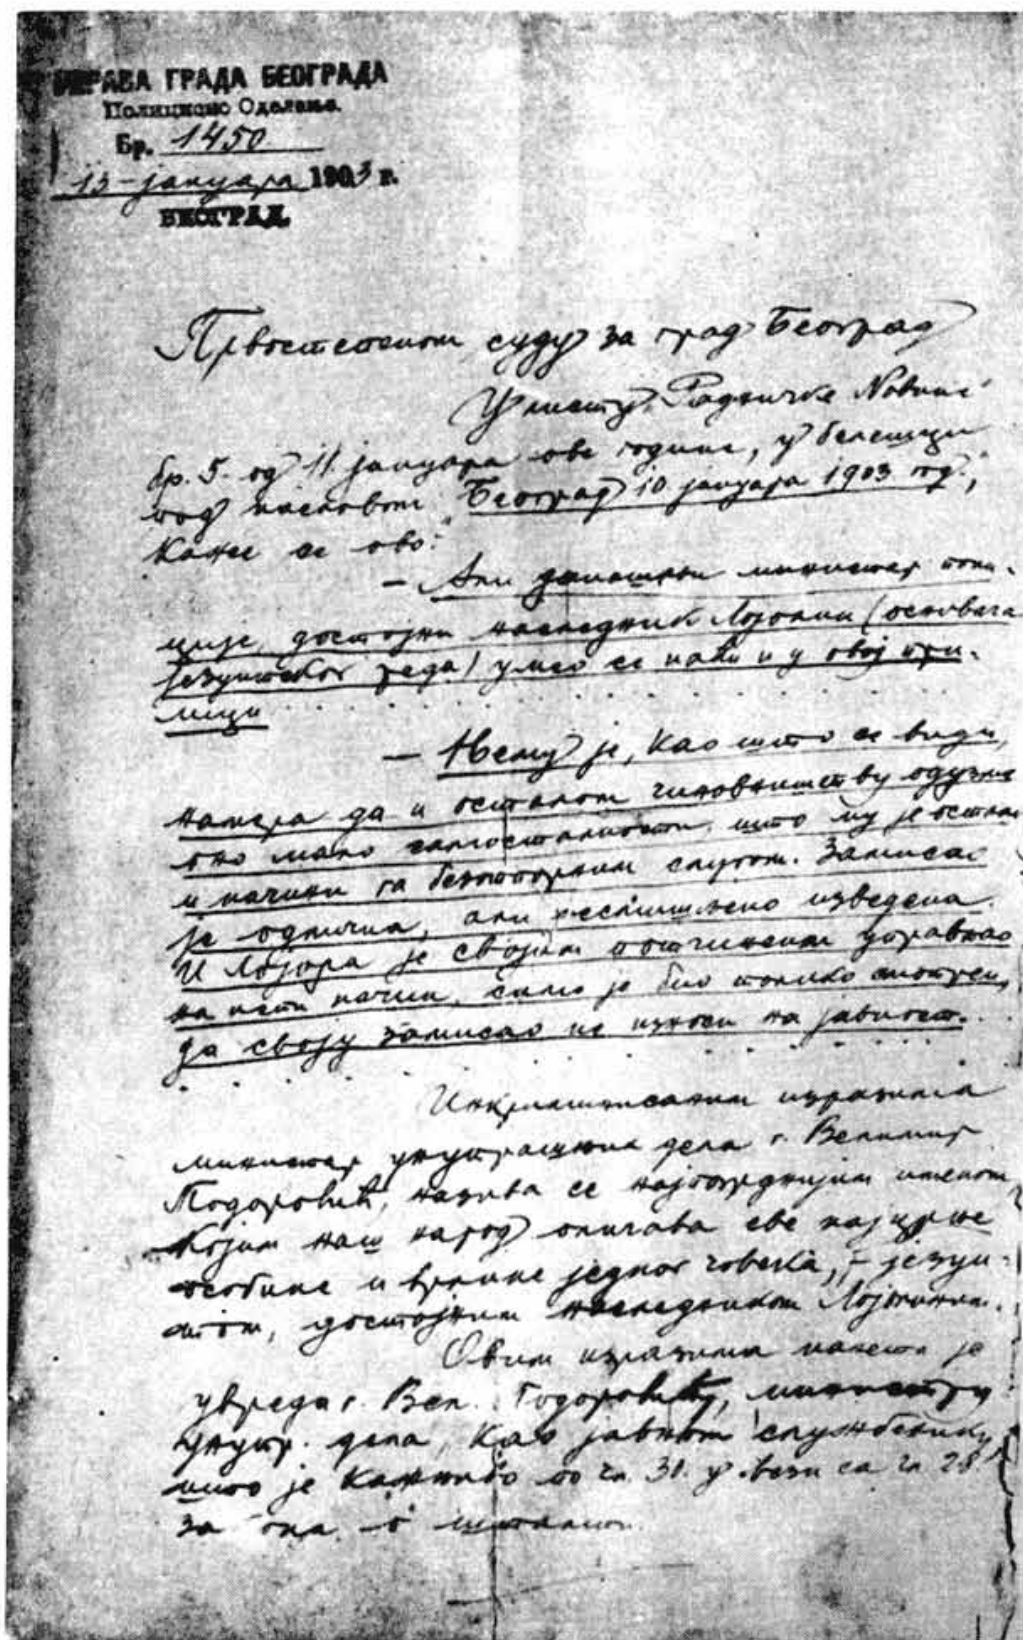 УПРАВА ГРАДА БЕОГРАДА
Полицијско Одељење.
Бр. 1450
13-јануара 1903 г.
БЕОГРАД.
Првостепеном суду за град Београд
У листу „Радничке Новине“
бр. 5. од 11 јануара ове године, у белешци
под насловом „Београд 10 јануара 1903 год.“,
каже се ово:
— Али данашњи министар поли-
ције, достојни наследник Лојолин (оснивача
језуитског реда) умео се наћи и у овој при-
лици
— Њему је, као што се види,
намера да и осталом чиновништву одузме
оно мало самосталности што му је остало
и начини га безотпорним слугом. Замисао
је одлична, али несмишљено изведена.
И Лојола је својим потчињеним управљао
на исти начин, само је био толико смотрен,
да своју замисао не износи на јавност.
Инкриминисаним изразима
министар унутрашњих дела г. Велимир
Тодоровић, назива се најпогрднијим именом
којим наш народ оличава све најцрње
особине и врлине једног човека, – језуи-
том, достојним наследником Лојолиним.
Овим изразима нанета је
увреда г. Вел. Тодоровићу, министру
унутр. дела, као јавном службенику
што је кажњиво по чл. 31. у вези са чл. 28
за о штампи